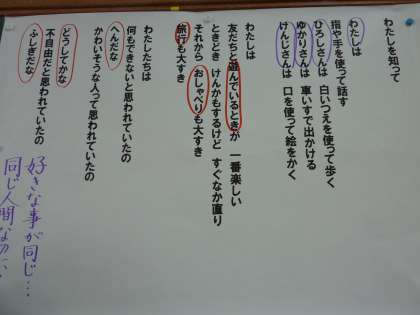 わたしを知って
わたしは
指や手を使って話す
ひろしさんは 白いつえを使って歩く
ゆかりさんは 車いすで出かける
けんじさんは 口を使って絵をかく
わたしは
友だちと遊んでいるときが 一番楽しい
ときどき けんかもするけど すぐなか直り
それから おしゃべりも大すき
旅行も大すき
わたしたちは
何もできないと思われていたの
へんだな
かわいそうな人って思われていたの
どうしてかな
不自由だと思われていたの
ふしぎだな
好きな事が同じ…
同じ人間なのに